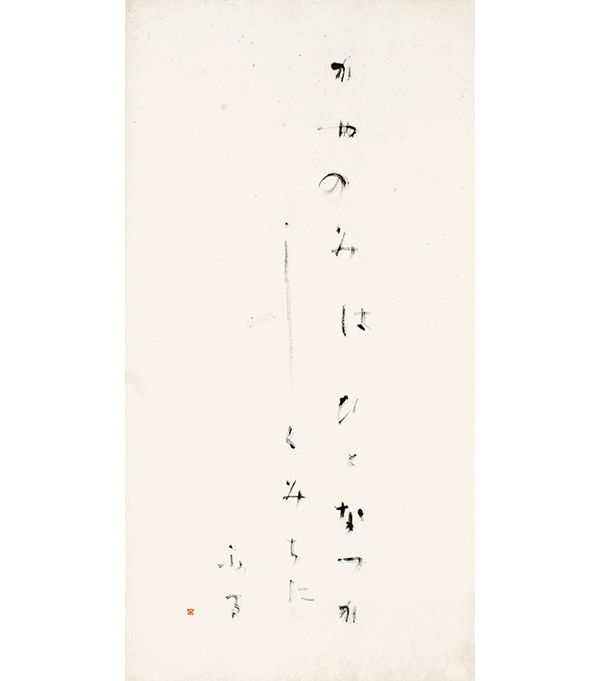 かやのみはひとなつか
しくみちに
ふる